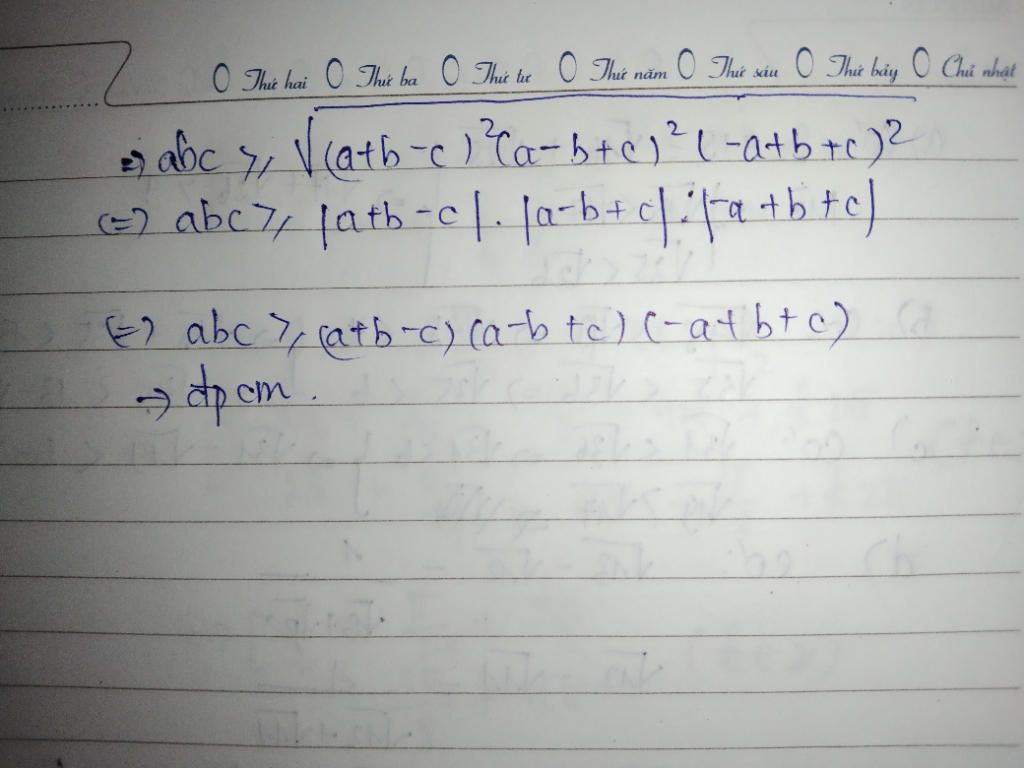 Thứ hai Thứ ba Thứ tư Thứ năm Thứ sáu Thứ bảy Chủ nhật
=> abc ≥ √((a+b-c)²(a-b+c)²(-a+b+c)²)
<=> abc ≥ |a+b-c|.|a-b+c|.|-a+b+c|
<=> abc ≥ (a+b-c)(a-b+c)(-a+b+c)
→ đpcm.